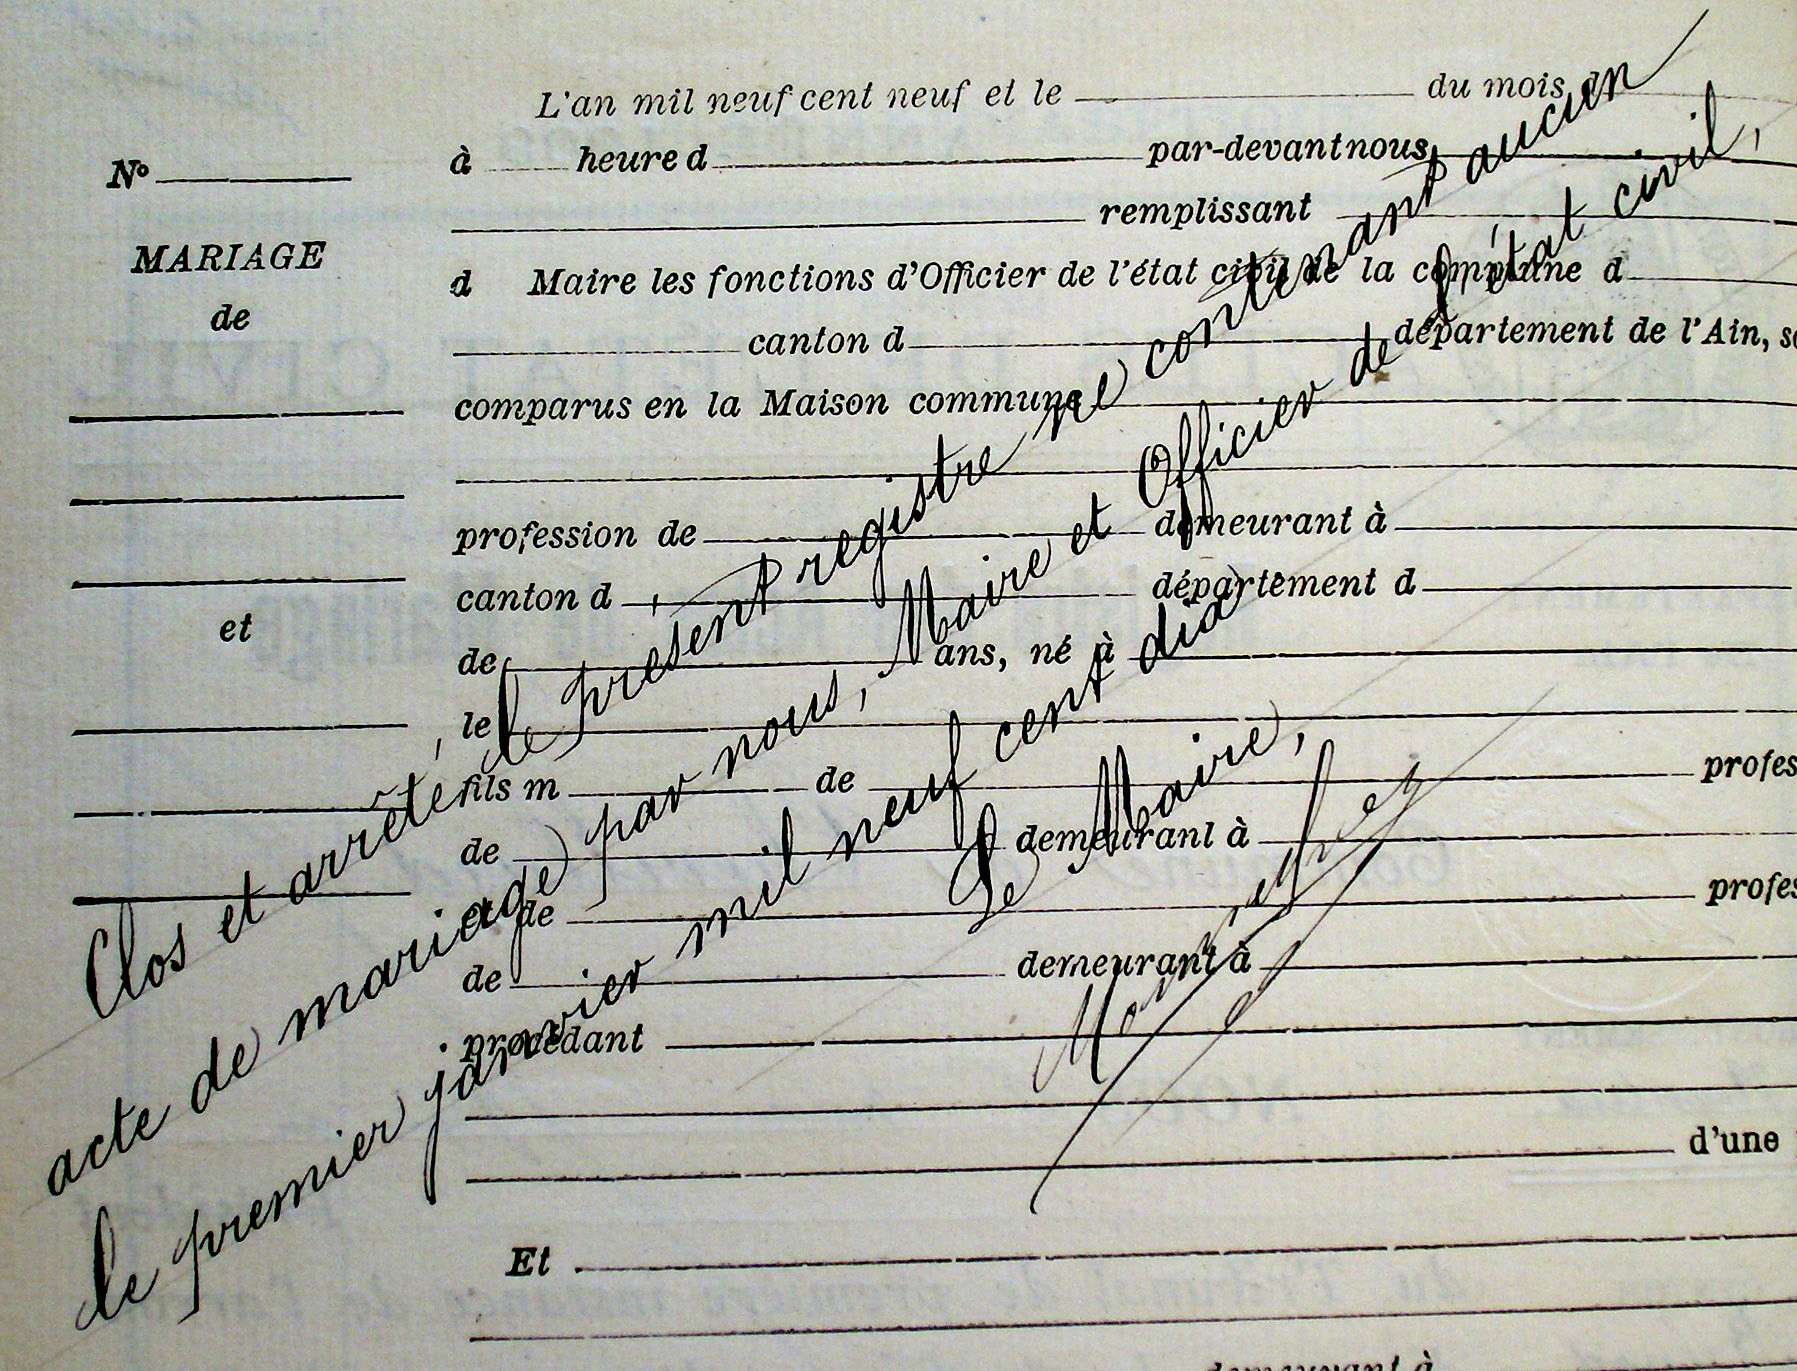 L'an mil neuf cent neuf et le du mois d
à heure d par-devant nous
remplissant
d Maire les fonctions d'Officier de l'état civil de la commune d
canton d département de l'Ain, so
comparus en la Maison commune
profession de demeurant à
canton d département d
de ans, né à
le
fils m de profes
de demeurant à
et de profes
de demeurant à
procédant
d'une
Et
demeurant à
No
MARIAGE
de
et
Clos et arrêté, le présent registre ne contenant aucun
acte de mariage par nous, Maire et Officier de l'état civil,
le premier janvier mil neuf cent dix
Le Maire,